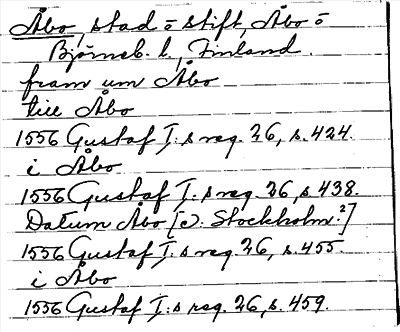 Åbo, stad o stift, Åbo o
Björneb. l., Finland.
fram um Åbo
till Åbo
1556 Gustaf I:s reg. 26, s. 424.
i Åbo
1556 Gustaf I:s reg. 26, s. 438.
Datum Åbo [o: Stockholm?]
1556 Gustaf I:s reg. 26, s. 455.
i Åbo
1556 Gustaf I:s reg. 26, s. 459.